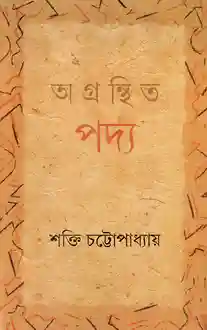 অগ্রন্থিত
পদ্য
শক্তি চট্টোপাধ্যায়